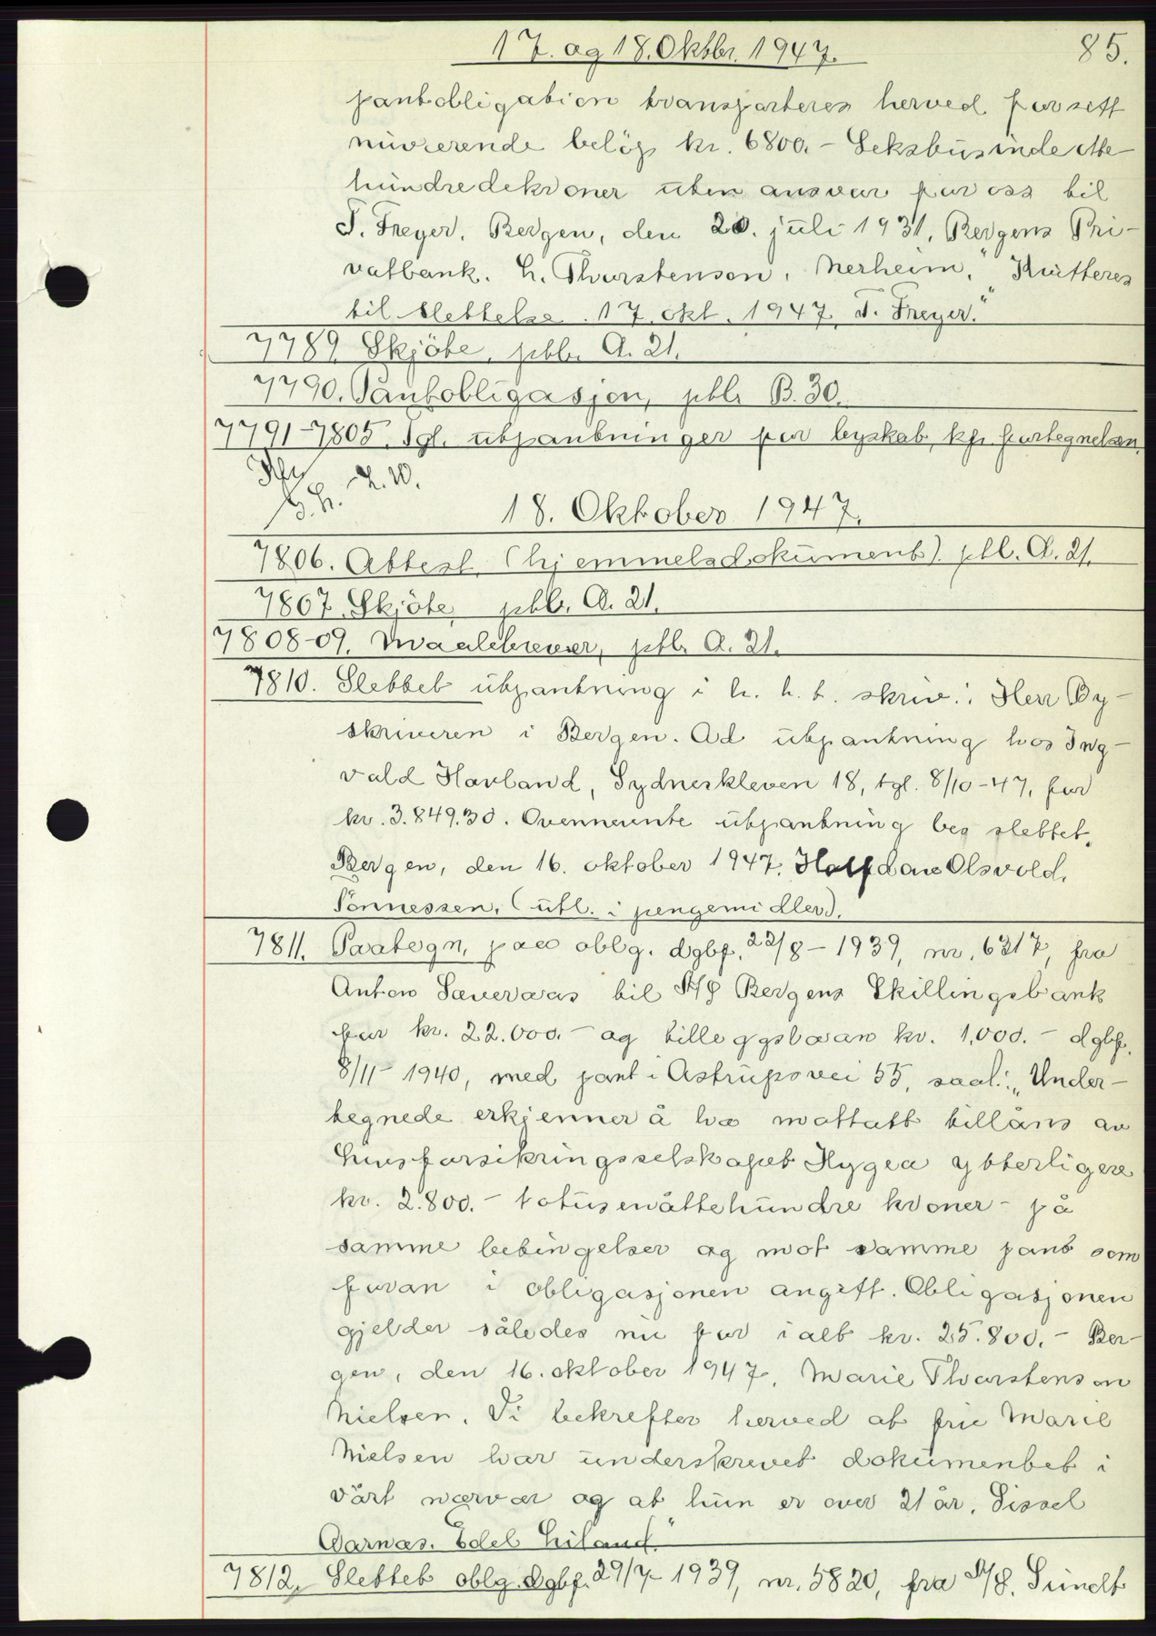 17. og 18. Oktbr. 1947.
85.
pantobligation transporteres herved for sitt
nuværende beløp kr. 6800.- Sekstusindeotte
hundredekroner uten ansvar for oss til
T. Freyer. Bergen, den 20. juli 1931. Bergens Pri-
vatbank. L. Thorstensen. Nerheim." Kvitteres
til slettelse. 17. okt. 1947. T. Freyer."
7789. Skjöte, ptbl. A. 21.
7790. Pantobligasjon, ptbl. B. 30.
7791-7805. Tgl. utpantninger for byskat, kfr. fortegnelsen.
18. Oktober 1947.
7806. Attest (hjemmelsdokument) ptl. A. 21.
7807. Skjöte, ptbl. A. 21.
7808-09. Maalebrever, ptbl. A. 21.
7810. Slettet utpantning i h. h. t. skriv.: Herr By-
skriveren i Bergen. Ad utpantning hos Ing-
vald Havland, Sydneskleven 18, tgl. 8/10-47, for
kr. 3.849.30. Ovennevnte utpantning bes slettet.
Bergen, den 16. oktober 1947. Halfdan Olsvold.
Tönnessen. (utl. i pengemidler).
7811. Paategn. paa oblg. dgbf. 22/8-1939, nr. 6217, fra
Anton Sæveraas til A/S Bergens Skillingsbank
for kr. 22.000.- og tilleggslaan kr. 1.000.- dgbf.
8/11-1940, med pant i Astrups vei 55, saal.: „Under-
tegnede erkjenner å ha mottatt tillåns av
Livsforsikringsselskapet Hygea ytterligere
kr. 2.800.- totusenåttehundre kroner - på
samme betingelser og mot samme pant som
foran i obligasjonen angitt. Obligasjonen
gjelder således nu for i alt kr. 25.800.- Ber-
gen, den 16. oktober 1947. Marie Thorstenson
Nielsen. Vi bekrefter herved at fru Marie
Nielsen har underskrevet dokumentet i
vårt nærvær og at hun er over 21 år. Sissel
Aarnas. Edel Liland."
7812. Slettet oblg. dgbf. 29/7-1939, nr. 5820, fra A/S. Sundt